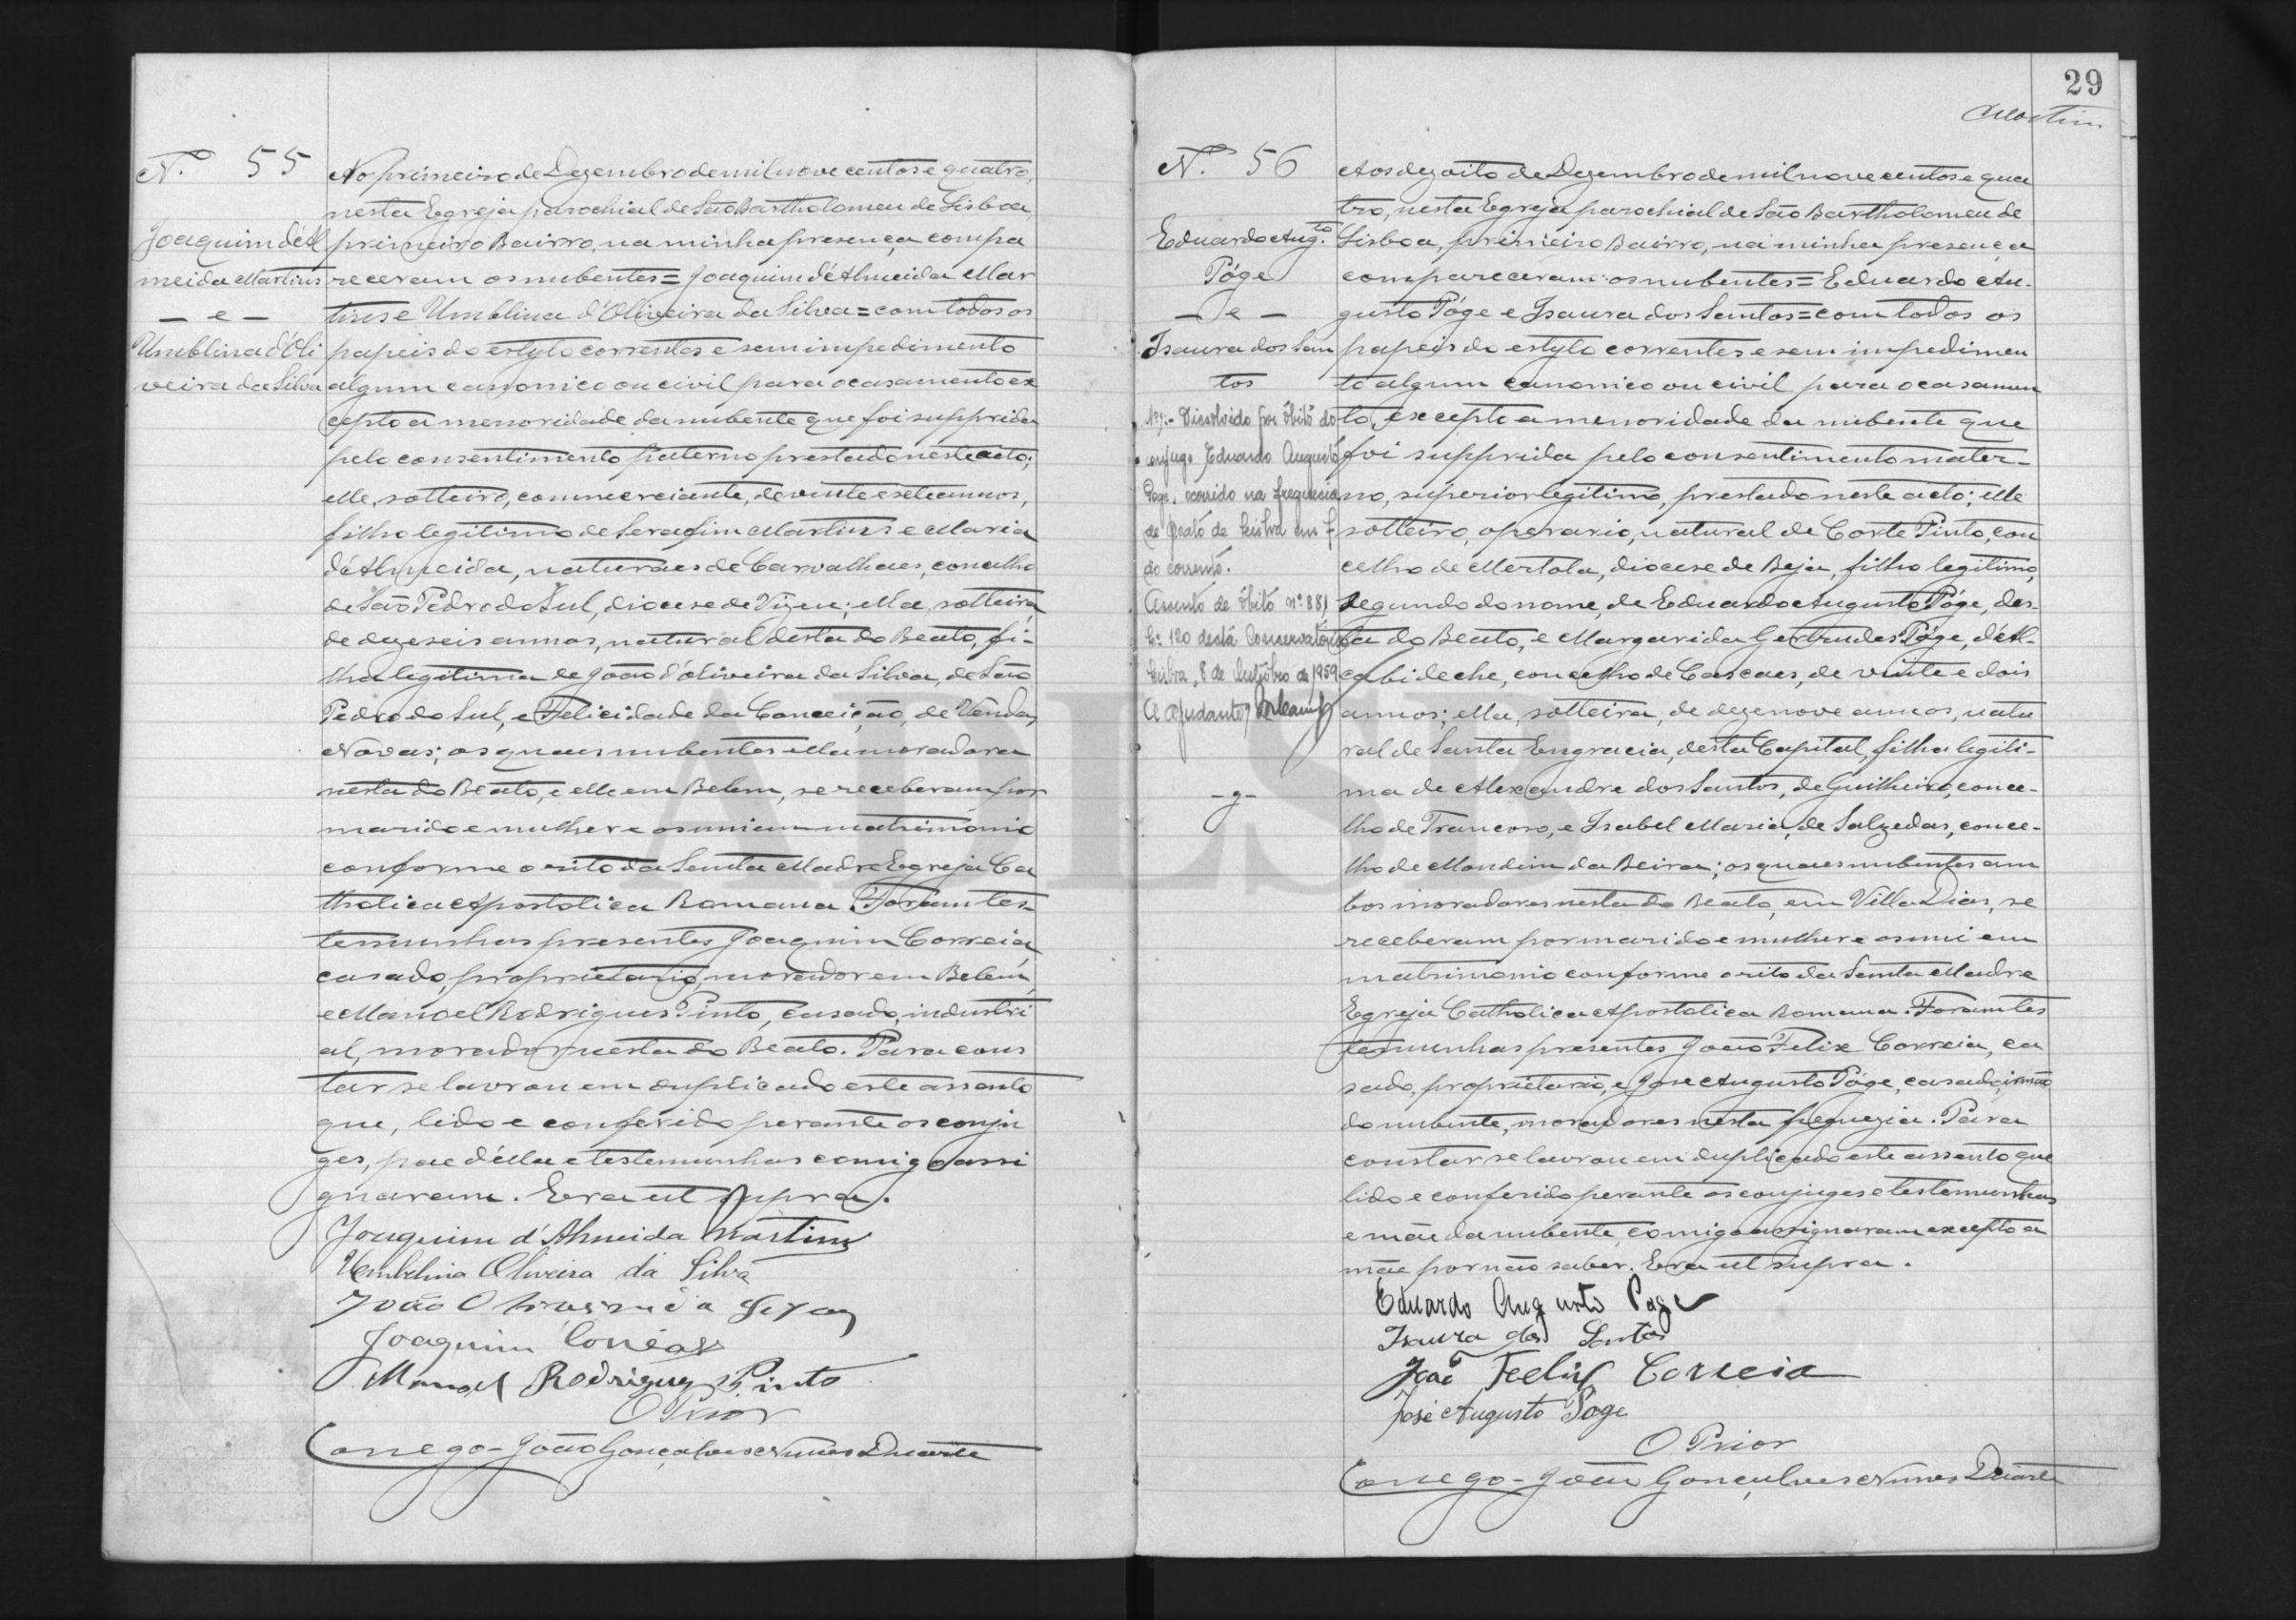 N.º 55
Joaquim d'Al
meida Martins
— e —
Umblina d'Oli
veira da Silva
No primeiro de Dezembro de mil nove centos e quatro,
nesta Egreja parochial de São Bartholomeu de Lisboa,
primeiro Bairro, na minha presença compa
receram os nubentes = Joaquim d'Almeida Mar
tins e Umblina d'Oliveira da Silva = com todos os
papeis do estylo correntes e sem impedimento
algum canonico ou civil para o casamento ex
cepto a menoridade da nubente que foi supprida
pelo consentimento paterno prestado neste acto;
elle, solteiro, commerciante, de vinte e sete annos,
filho legitimo de Serafim Martins e Maria
d'Almeida, naturaes de Carvalhaes, concelho
de São Pedro do Sul, diocese de Vizeu; ella, solteira,
de dezeseis annos, natural desta do Beato, fi-
lha legitima de João d'Oliveira da Silva, de São
Pedro do Sul, e Felicidade da Conceição, de Vendas
Novas; os quaes nubentes ella moradora
nesta do Beato, e elle em Belem, se receberam por
marido e mulher e os uni em matrimonio
conforme o rito da Santa Madre Egreja Ca
tholica Apostolica Romana. Foram tes-
temunhas presentes Joaquim Correia,
casado, proprietario, morador em Belem,
e Manoel Rodrigues Pinto, casado, industri
al, morador nesta do Beato. Para cons
tar se lavrou em duplicado este assento
que, lido e conferido perante os conju
ges, pae d'ella e testemunhas comigo assi
gnaram. Era ut supra.
Joaquim d'Almeida Martins
Umbelina Oliveira da Silva
João Oliveira da Silva
Joaquim Corrêa
Manoel Rodrigues Pinto
O Prior
Conego - João Gonçalves Nunes Duarte
29
Martins
N.º 56
Eduardo Aug.to
Póge
— e —
Isaura dos San
tos
Nº 1:- Dissolvido por óbito do
conjuge Eduardo Augusto
Poge, ocorrido na freguesia
do Beato de Lisboa em 7
do corrente.
Assento de óbito nº 881
Lº 120 desta Conservatória
Lisboa, 8 de Outubro de 1959
O ajudante,
Aos dezoito de Dezembro de mil nove centos e qua
tro, nesta Egreja parochial de São Bartholomeu de
Lisboa, primeiro Bairro, na minha presença
compareceram os nubentes = Eduardo Au-
gusto Póge e Isaura dos Santos = com todos os
papeis do estylo correntes e sem impedimen
to algum canonico ou civil para o casamen
to, excepto a menoridade da nubente que
foi supprida pelo consentimento mater-
no, superior legitimo, prestado neste acto; elle
solteiro, operario, natural de Corte Pinto, con
celho de Mertola, diocese de Beja, filho legitimo,
segundo do nome, de Eduardo Augusto Póge, des-
ta do Beato, e Margarida Gertrudes Póge, d'Al-
cabideche, concelho de Cascaes, de vinte e dois
annos; ella, solteira, de dezenove annos, natu
ral de Santa Engracia, desta Capital, filha legiti-
ma de Alexandre dos Santos, de Guilheiro, conce-
lho de Trancoso, e Isabel Maria, de Salzedas, conce-
lho de Mondim da Beira; os quaes nubentes am
bos moradores nesta do Beato, em Villa Dias, se
receberam por marido e mulher e os uni em
matrimonio conforme o rito da Santa Madre
Egreja Catholica Apostolica Romana. Foram tes
temunhas presentes João Felix Correia, ca
sado, proprietario, e José Augusto Póge, casado, irmão
do nubente, moradores nesta freguezia. Para
constar se lavrou em duplicado este assento que
lido e conferido perante os conjuges e testemunhas
e mãe da nubente, comigo assignaram excepto a
mãe por não saber. Era ut supra.
Eduardo Augusto Poge
Isaura dos Santos
João Feelix Correia
José Augusto Poge
O Prior
Conego - João Gonçalves Nunes Duarte
ADLSB